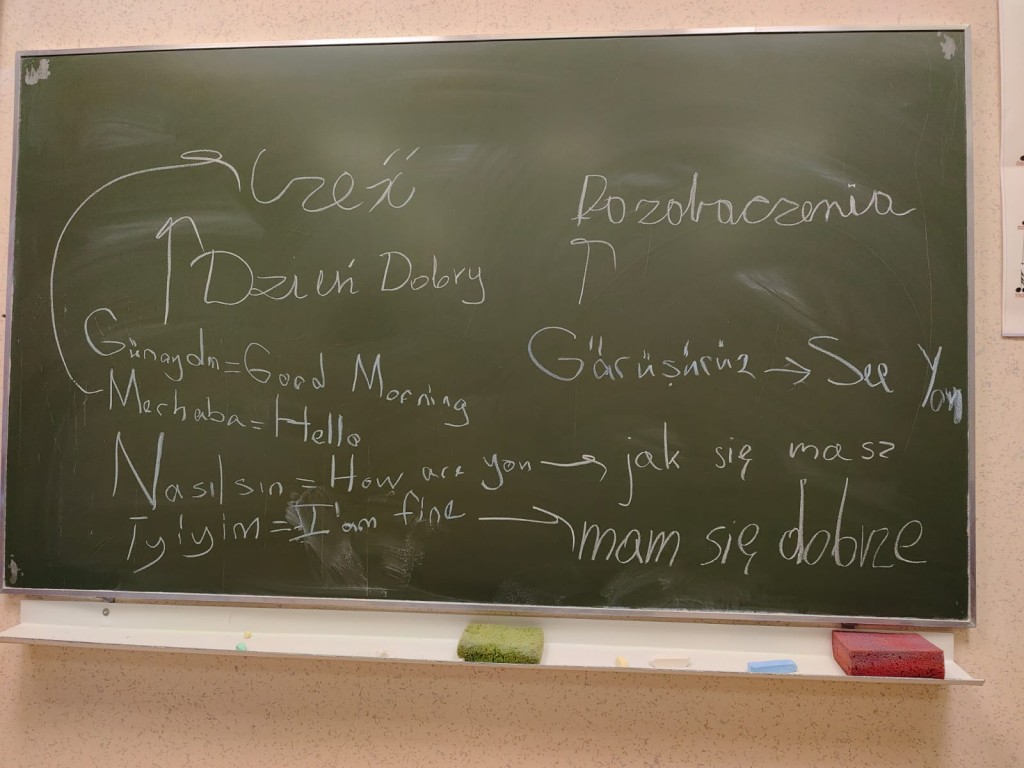 Cześć
Do zobaczenia
Dzień Dobry
Günaydın = Good Morning
Görüşürüz → See You
Merhaba = Hello
Nasılsın = How are you → jak się masz
İyiyim = I'am fine → mam się dobrze